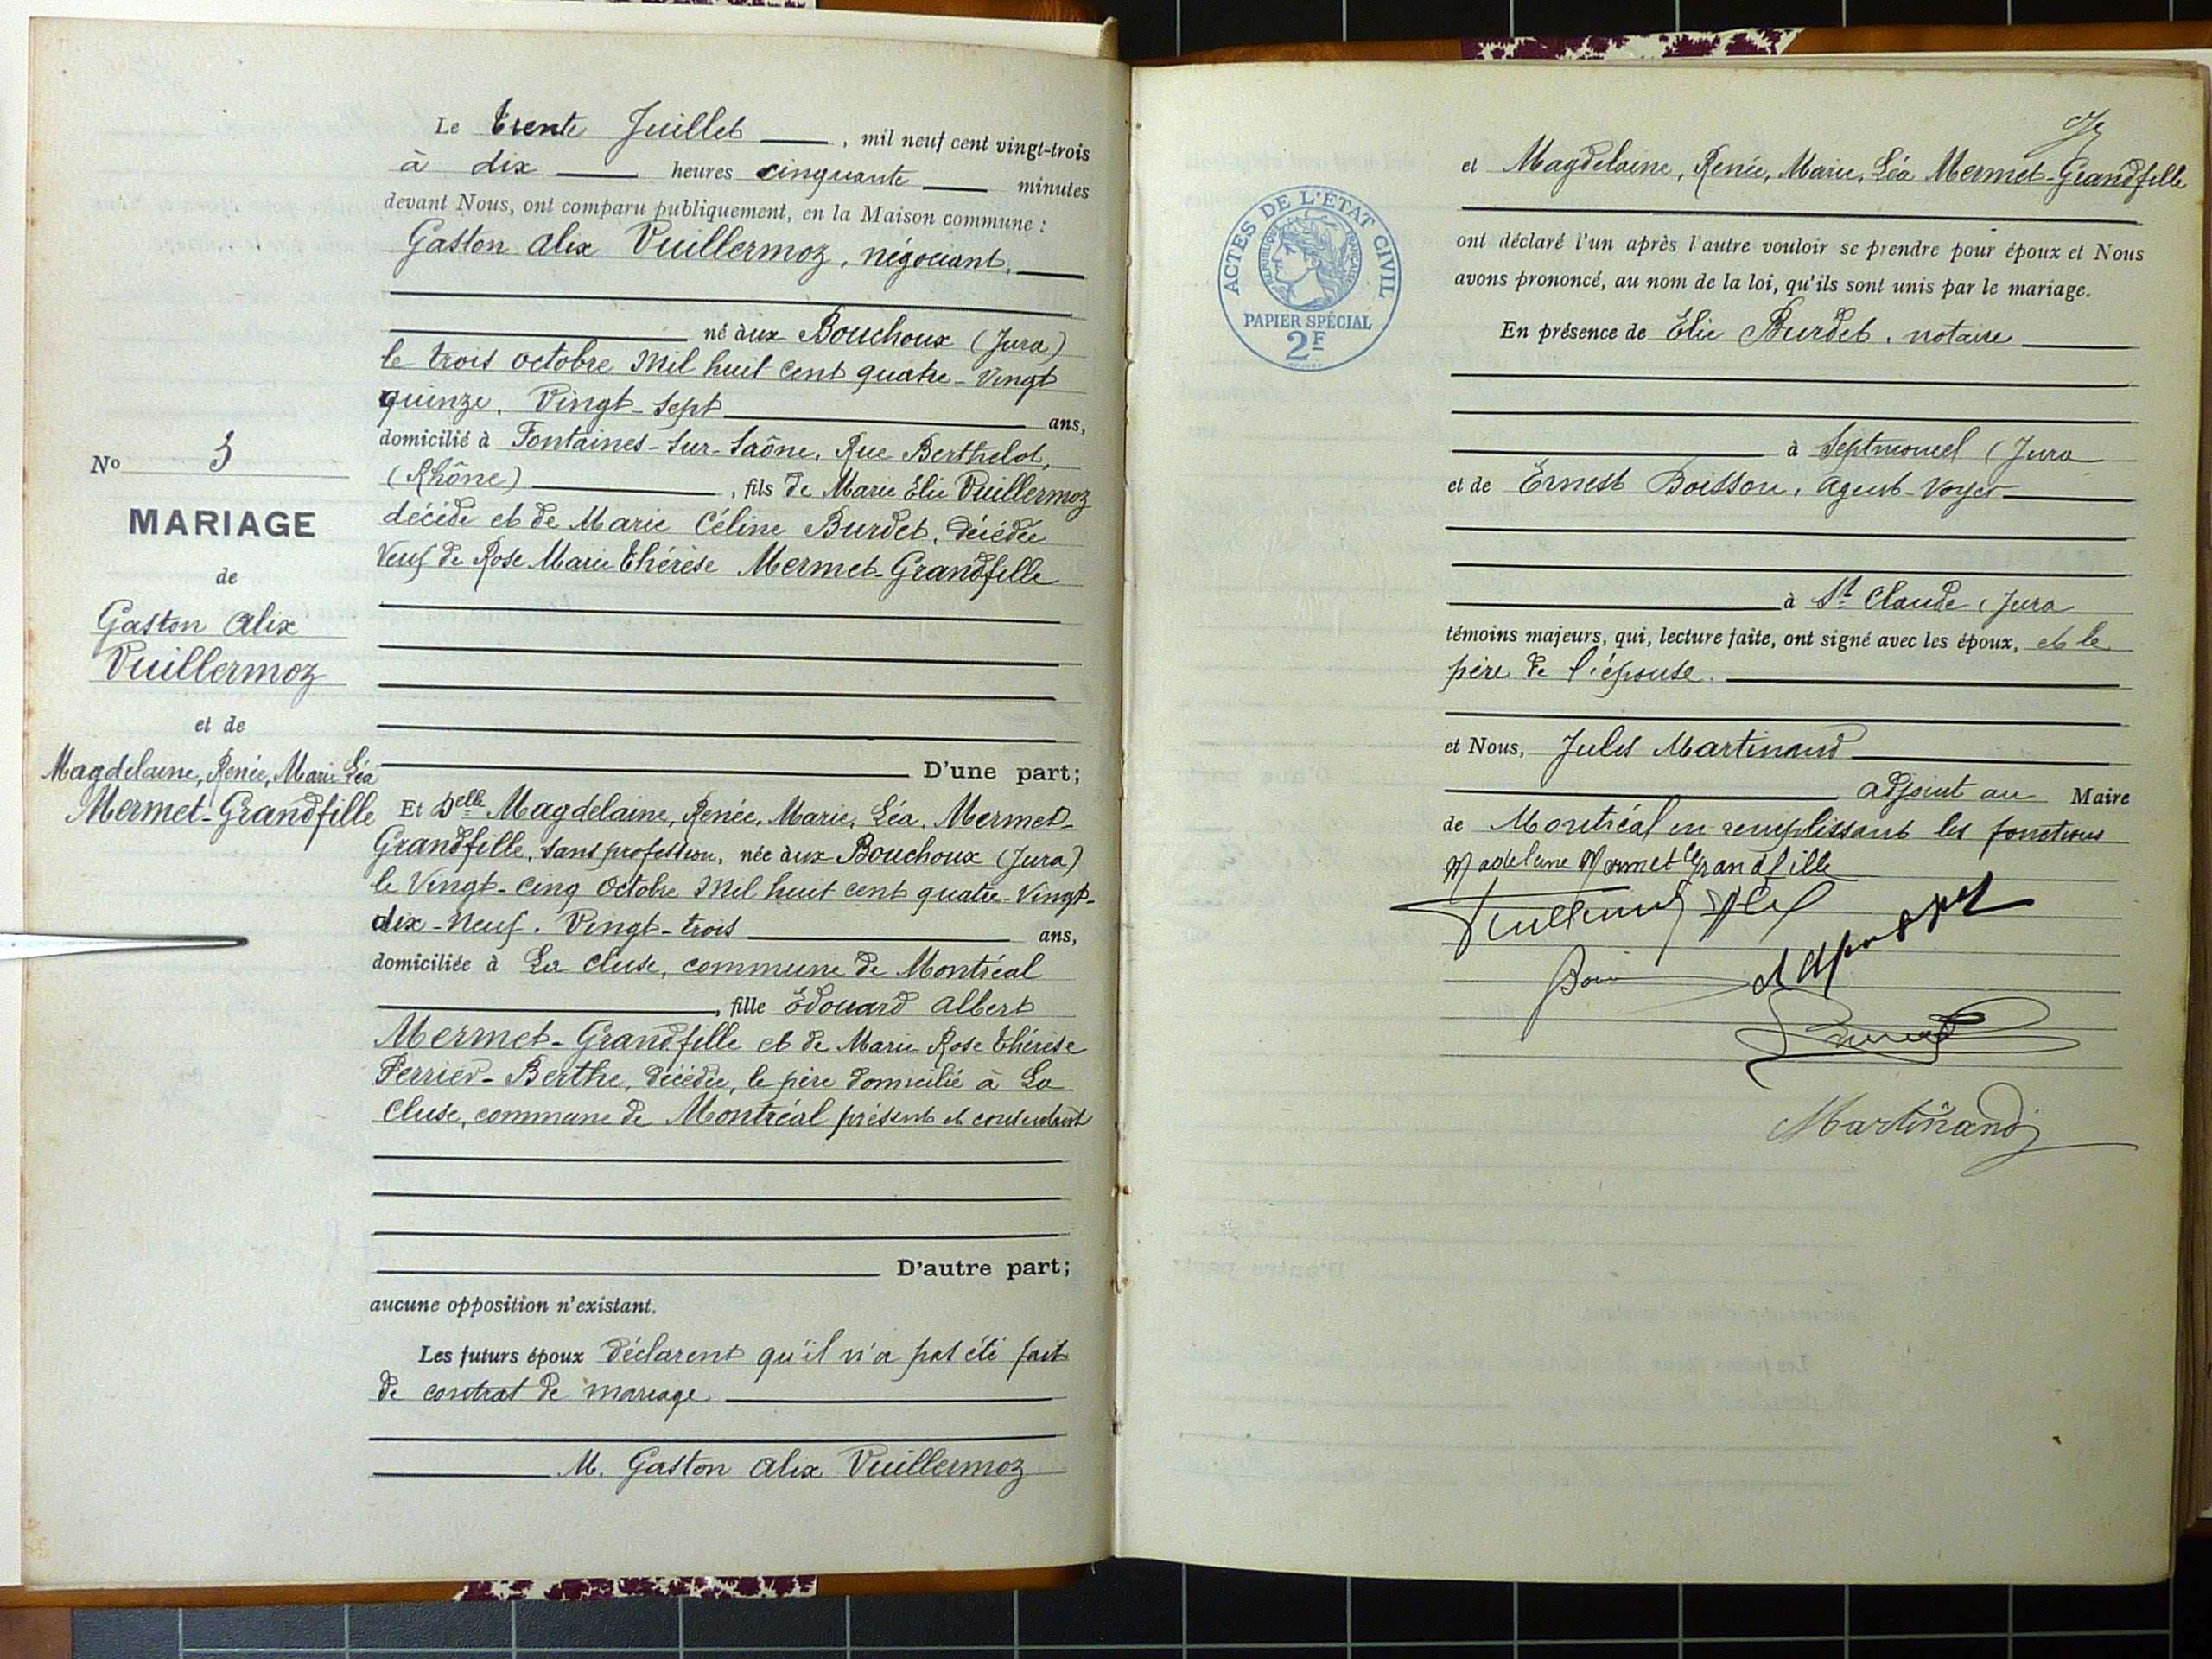 No 3
MARIAGE
de
Gaston Alix
Vuillermoz
et de
Magdelaine, Renée, Marie Léa
Mermet-Grandfille
Le trente Juillet, mil neuf cent vingt-trois
à dix heures cinquante minutes
devant Nous, ont comparu publiquement, en la Maison commune :
Gaston Alix Vuillermoz, négociant,
né aux Bouchoux (Jura)
le trois octobre Mil huit cent quatre-Vingt
quinze, Vingt-sept ans,
domicilié à Fontaines-sur-Saône, Rue Berthelot,
(Rhône), fils de Marie Elie Vuillermoz
décédé et de Marie Céline Burdet, décédée
Veuf de Rose Marie Thérèse Mermet-Grandfille
D'une part;
Et Delle Magdelaine, Renée, Marie, Léa, Mermet-
Grandfille, sans profession, née aux Bouchoux (Jura)
le Vingt-cinq Octobre Mil huit cent quatre-Vingt-
dix-Neuf. Vingt-trois ans,
domiciliée à La Cluse, commune de Montréal
, fille Edouard Albert
Mermet-Grandfille et de Marie Rose Thérèse
Perrier-Berthe, décédée, le père domicilié à La
Cluse, commune de Montréal présent et consentant
D'autre part;
aucune opposition n'existant.
Les futurs époux déclarent qu'il n'a pas été fait
de contrat de mariage
M. Gaston Alix Vuillermoz
ACTES DE L'ETAT CIVIL
REPUBLIQUE FRANÇAISE
PAPIER SPÉCIAL
2F
et Magdelaine, Renée, Marie, Léa Mermet-Grandfille
ont déclaré l'un après l'autre vouloir se prendre pour époux et Nous
avons prononcé, au nom de la loi, qu'ils sont unis par le mariage.
En présence de Elie Burdet, notaire
à Septmoncel (Jura
et de Ernest Boisson, Agent-Voyer
à St Claude (Jura
témoins majeurs, qui, lecture faite, ont signé avec les époux, et le
père de l'épouse.
et Nous, Jules Martinand
adjoint au Maire
de Montréal en remplissant les fonctions
Madeleine Mermet Grandfille
Martinand